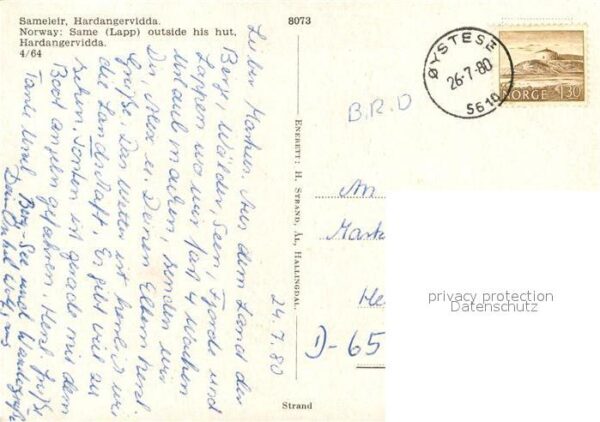 Sameleir, Hardangervidda.
Norway: Same (Lapp) outside his hut,
Hardangervidda.
4/64
8073
Lieber Markus, Aus dem Land der
Berge, Wälder, Seen, Fjorde und
Lappen wo wir fast 4 Wochen
Urlaub machen, senden wir
Dir, Alex u. Deinen Eltern herzl.
Grüße. Das Wetter ist herrl. u. wie
die Landschaft. Es gibt viel zu
sehen. ist gerade mit dem
Boot angeln gefahren. Herzl. Grüße
Tante und
Dein Onkel
24.7.80
ENERETT: H. STRAND, ÅL, HALLINGDAL.
Strand
ØYSTESE
26-7-80
5610
NORGE 1,30
B.R.D
An
Mark
He
D-65
privacy protection
Datenschutz